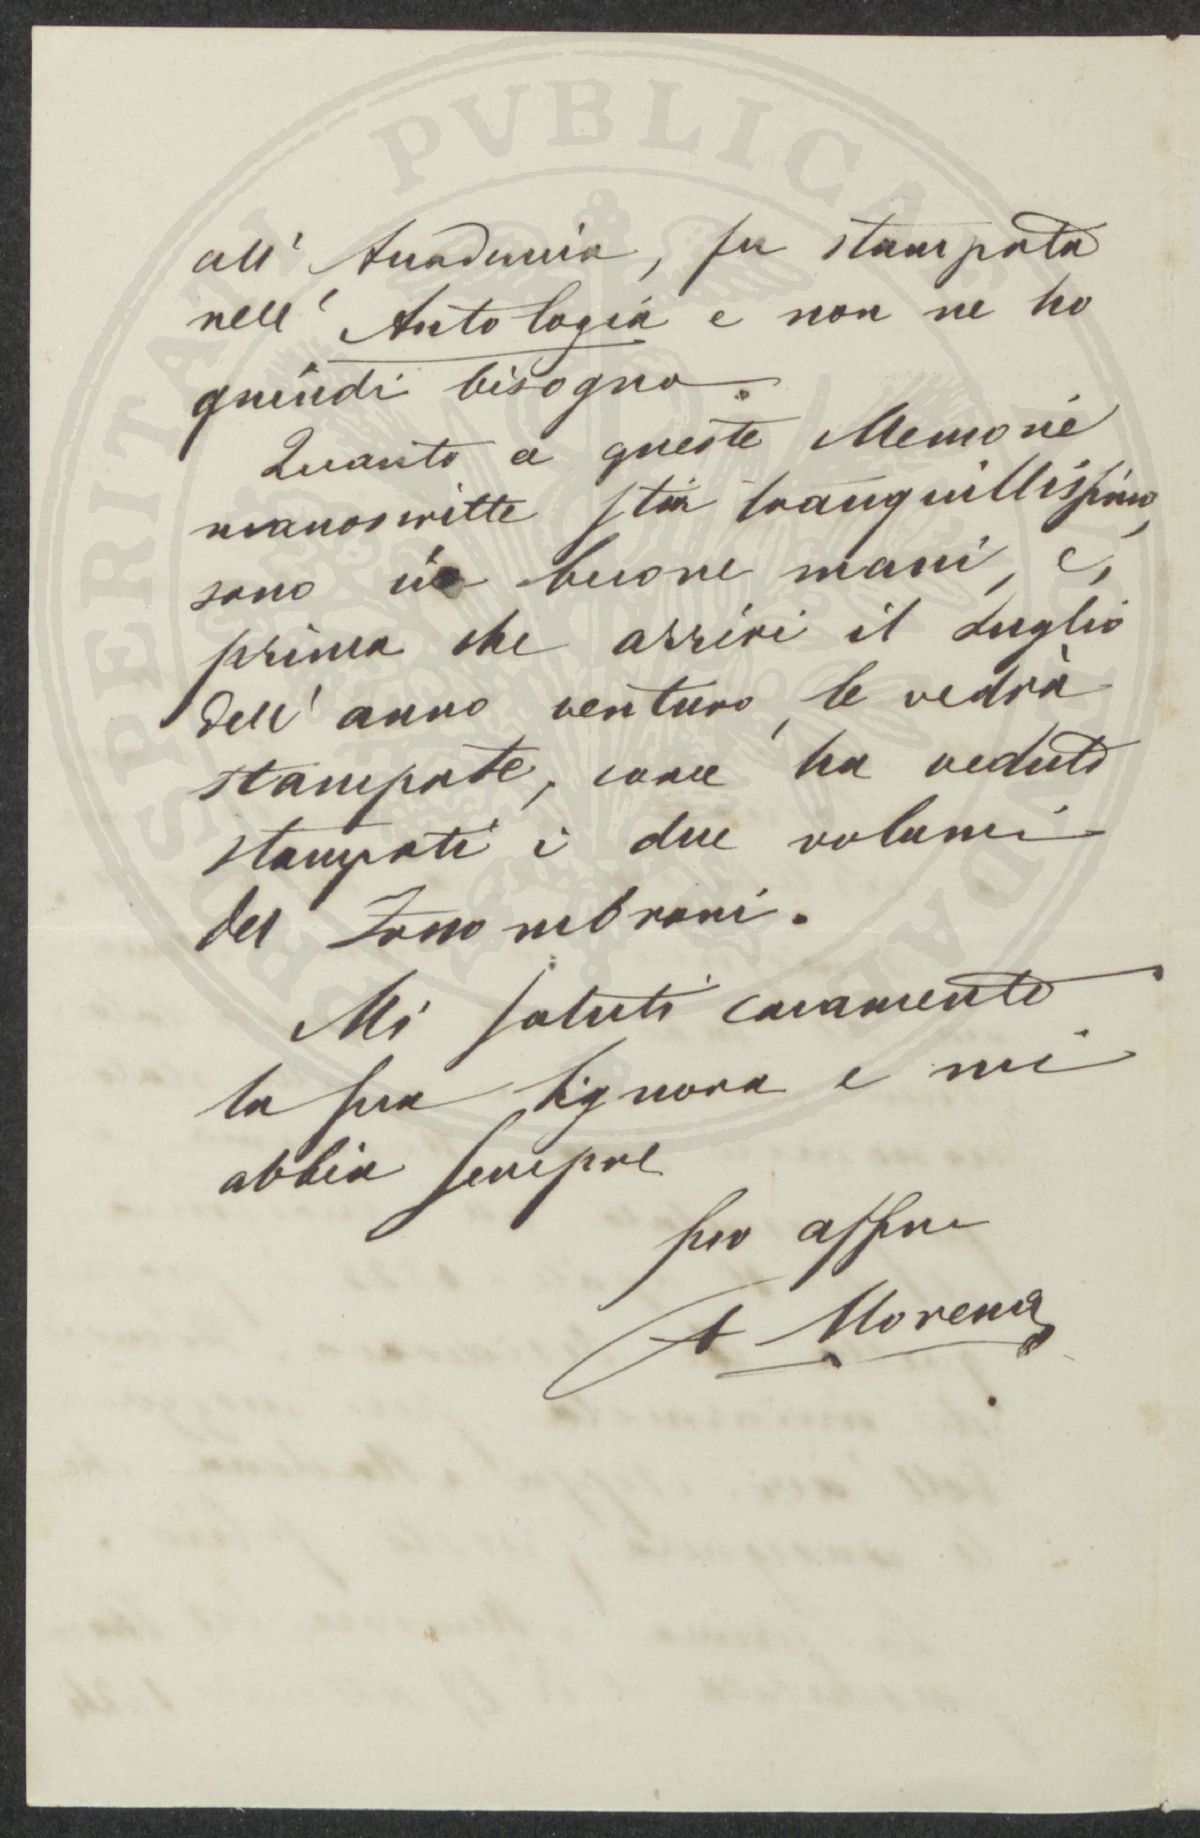 all' Accademia, fu stampata
nell' Antologia e non ne ho
quindi bisogno.
Quanto a queste Memorie
manoscritte stia tranquillissimo,
sono in buone mani, e,
prima che arrivi il Luglio
dell' anno venturo, le vedrà
stampate, come ha veduto
stampati i due volumi
del
Mi saluti caramente
la sua Signora e mi
abbia sempre
suo affmo
A Morena